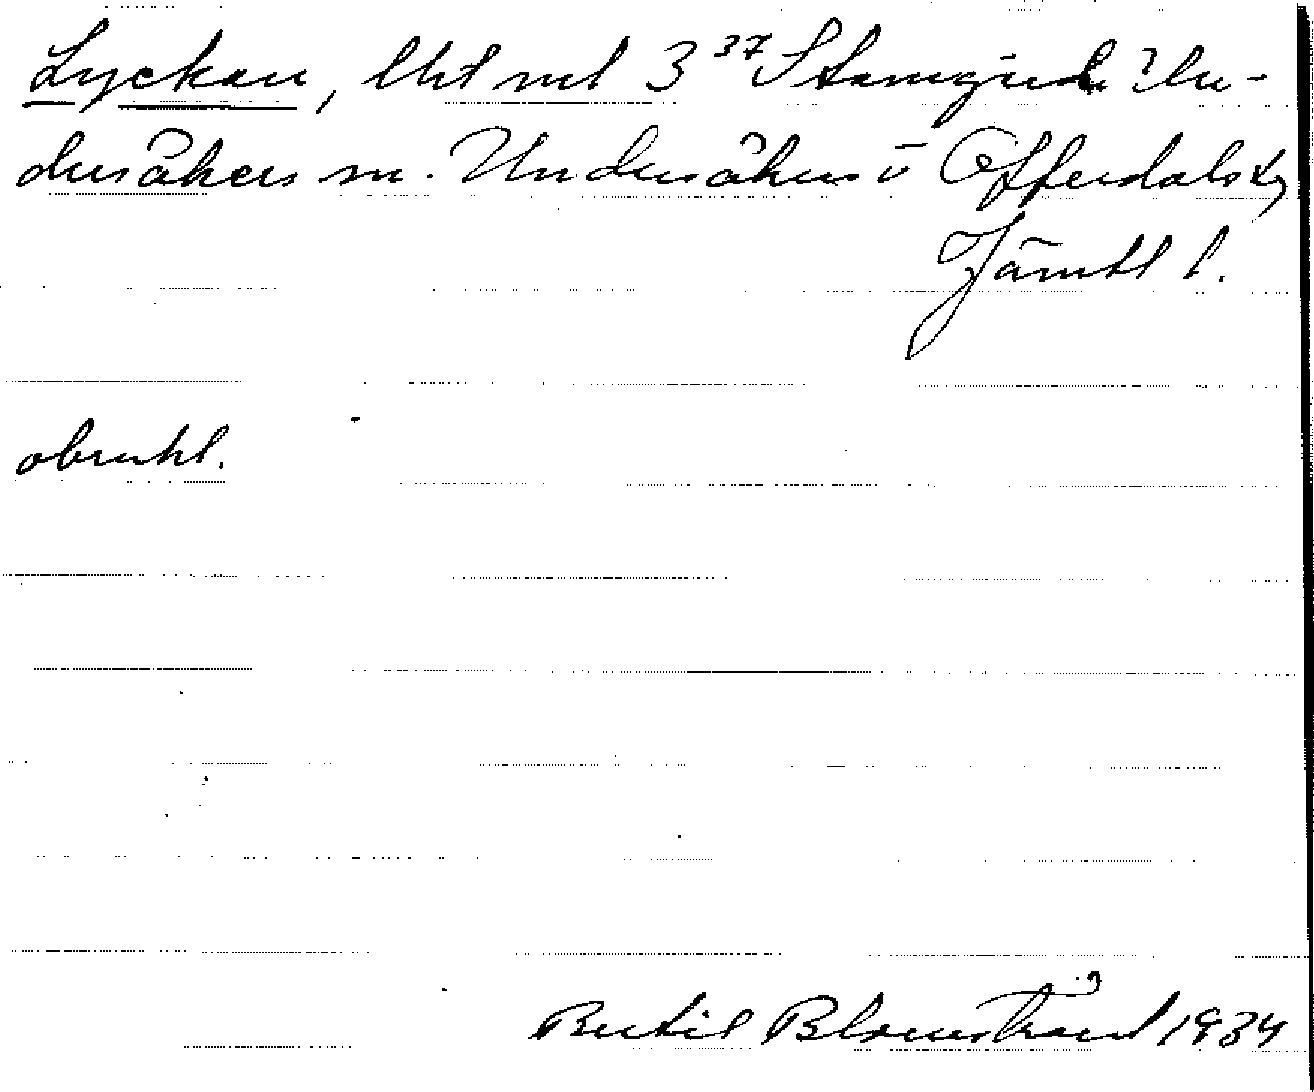 Lyckan, lht vid 3³⁷ Stamgärde i Un-
dersåkers sn. Undersåkers o Offerdals tg
Jämtl l.
obrukl.
Bertil Blomstrand 1934